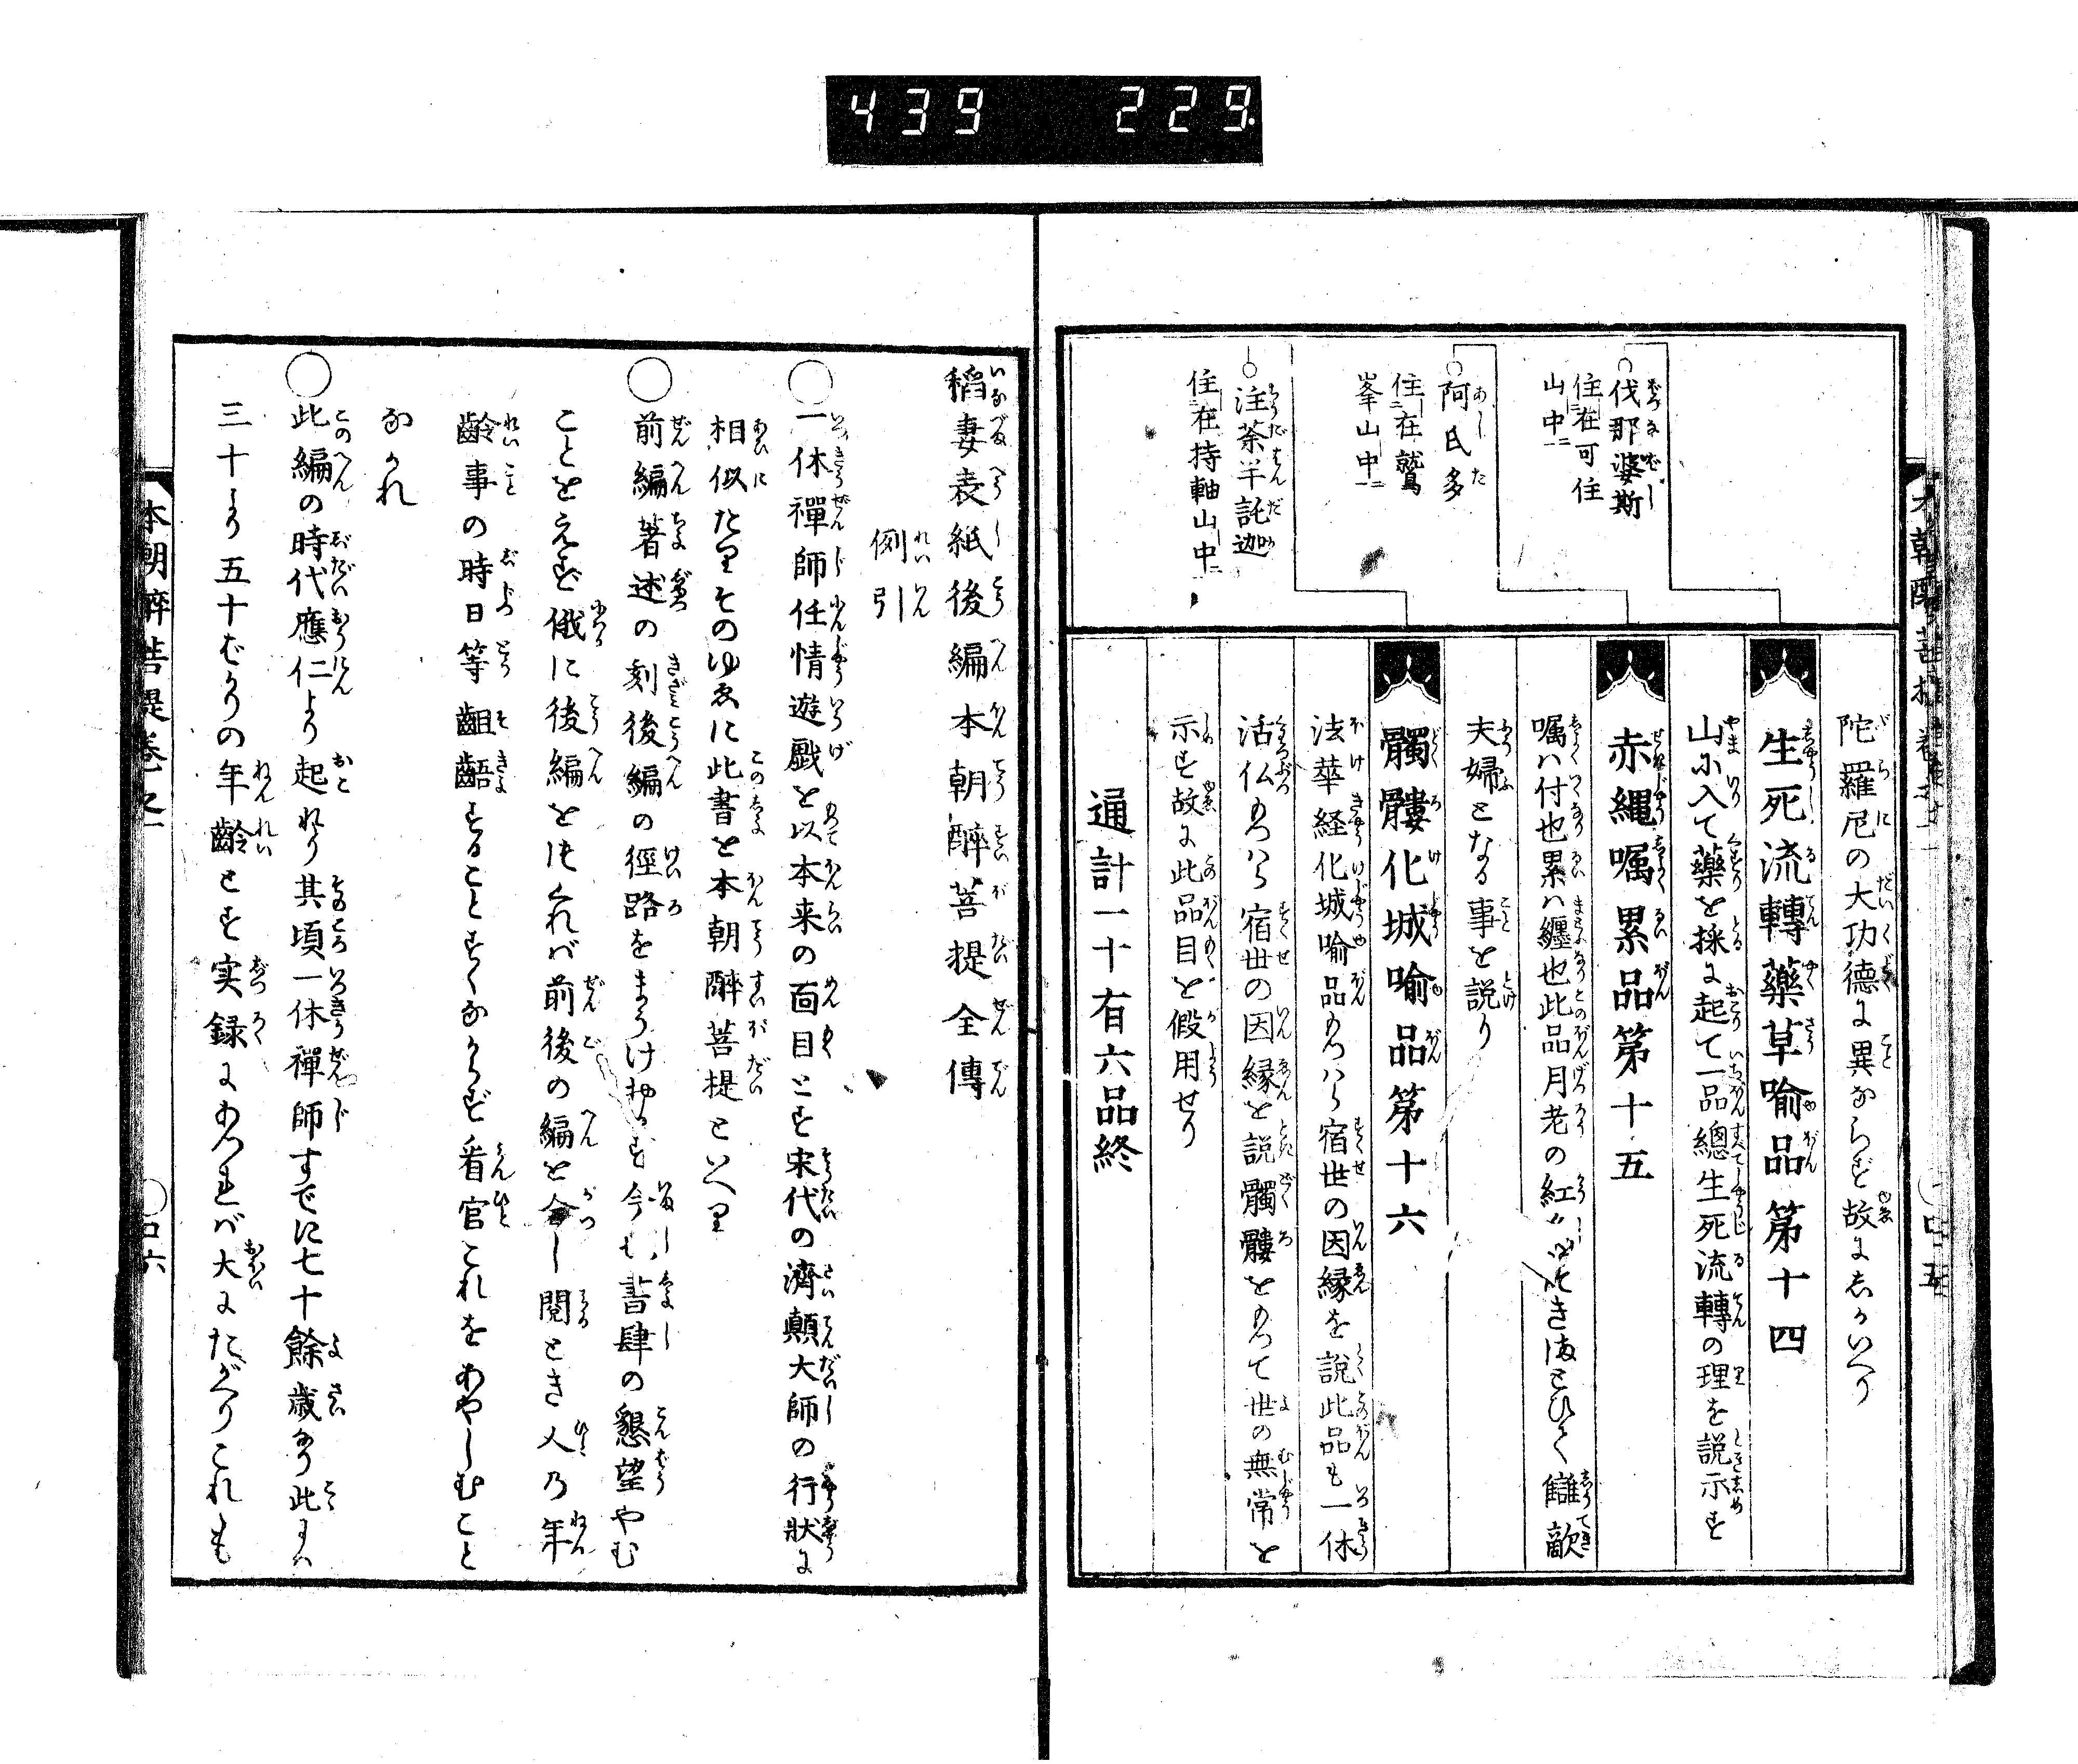 439 229
伐那婆斯
住在可住
山中
阿氏多
住在鷲
峯山中
注荼半託迦
住在持軸山中
陀羅尼の大功徳に異ならず故にしかいへり
生死流轉藥草喻品第十四
山に入て藥を採に起て一品總生死流轉の理を説示す
赤縄嘱累品第十五
嘱ハ付也累ハ纏也此品月老の紅
きずなをひきて讎敵
夫婦となる事を説り
髑髏化城喻品第十六
法華経化城喻品もつハら宿世の因縁を説此品も一休
活仏もつハら宿世の因縁を説髑髏をもつて世の無常を
示す故に此品目を假用せり
通計一十有六品終
稻妻表紙後編本朝醉菩提全傳
例引
○一休禪師任情遊戯を以本来の面目とす宋代の濟顛大師の行狀に
相似たりそのゆゑに此書を本朝醉菩提といへり
○前編著述の刻後編の徑路をまうけおかず今書肆の懇望やむ
ことをえず俄に後編をつくれバ前後の編を合し閲とき人の年
齡事の時日等齟齬することすくなからず看官これをあやしむこと
なかれ
○此編の時代應仁より起れり其頃一休禪師すでに七十餘歳なり此にハ
三十より五十ばかりの年齡とす実録にあつれバ大にたがへりこれも
本朝醉菩提卷之一
○口六